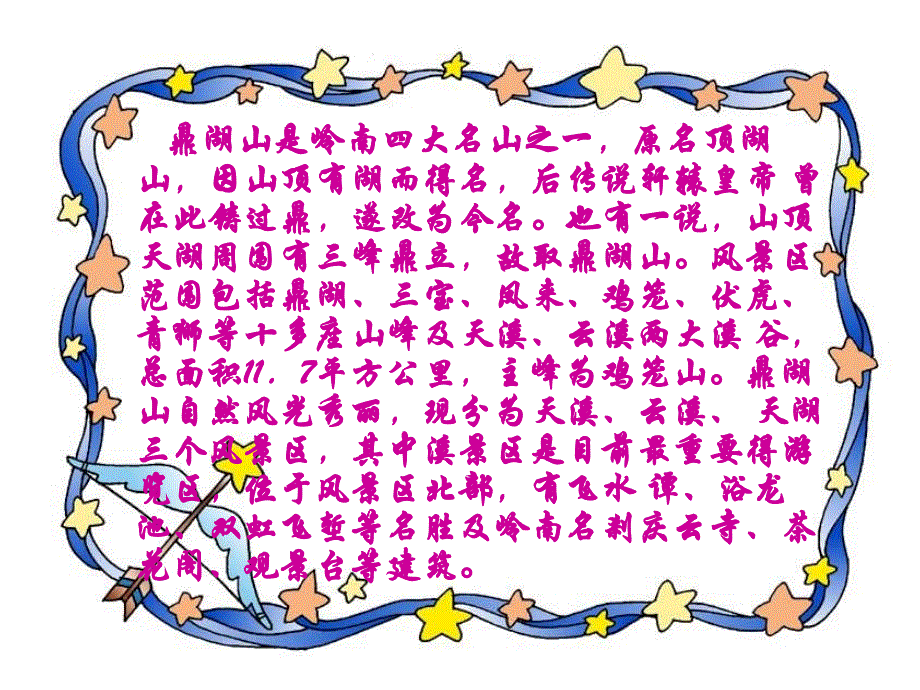 鼎湖山是岭南四大名山之一，原名顶湖
山，因山顶有湖而得名，后传说轩辕皇帝 曾
在此铸过鼎，遂改为今名。也有一说，山顶
天湖周围有三峰鼎立，故取鼎湖山。风景区
范围包括鼎湖、三宝、凤来、鸡笼、伏虎、
青狮等十多座 山峰及天溪、云溪两大溪 谷，
总面积11．7平方公里，主峰为鸡笼山。鼎湖
山自然风光秀丽，现分为天溪、云溪、 天湖
三个风景区，其中溪景区是目前最重要得游
览区，位于风景区北部，有飞水 谭、浴龙
池、双虹飞堑等名胜及岭南名刹庆云寺、茶
花阁、观景台等建筑。